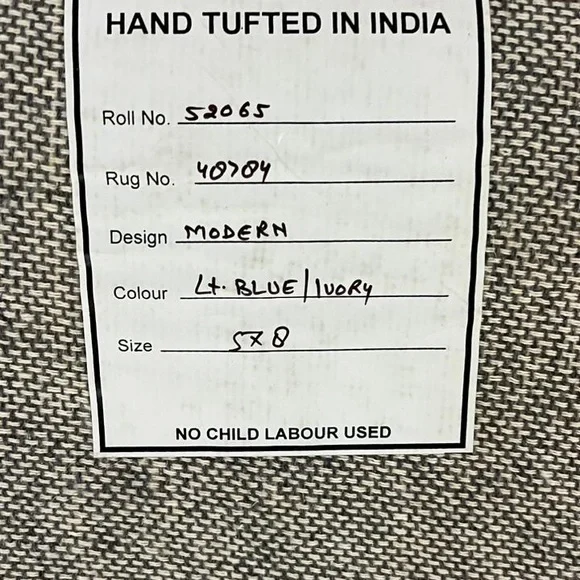 HAND TUFTED IN INDIA
Roll No. 52065
Rug No. 40704
Design MODERN
Colour Lt. BLUE/IVORY
Size 5X8
NO CHILD LABOUR USED